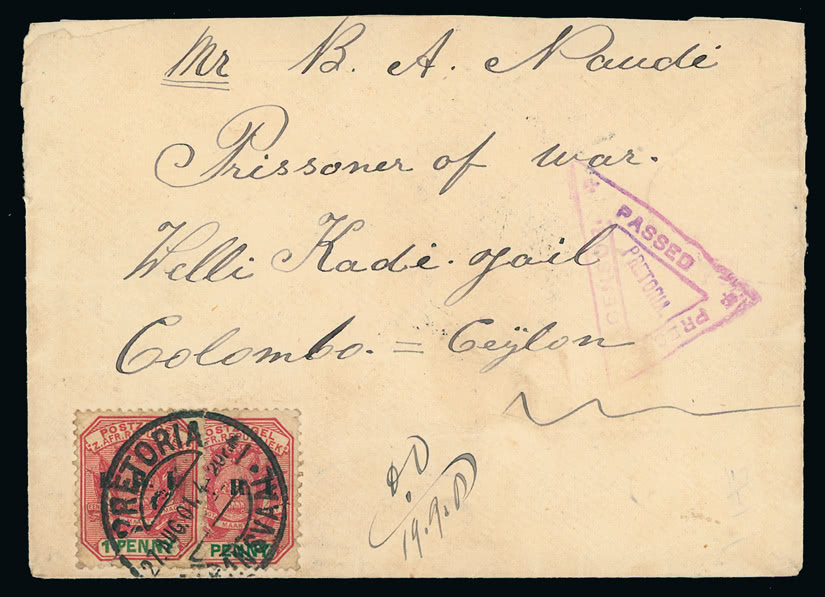 Mr B. A. Naudé
Prissoner of war.
Welli Kadé. gail
Colombo. = Ceÿlon
PASSED
PRETORIA
CENSOR
PRE
POSTZEGEL
Z.AFR.REPUBLIEK
1 PENNY PENNY
PRETORIA
TRANSVAAL
AUG.01
19.9.01